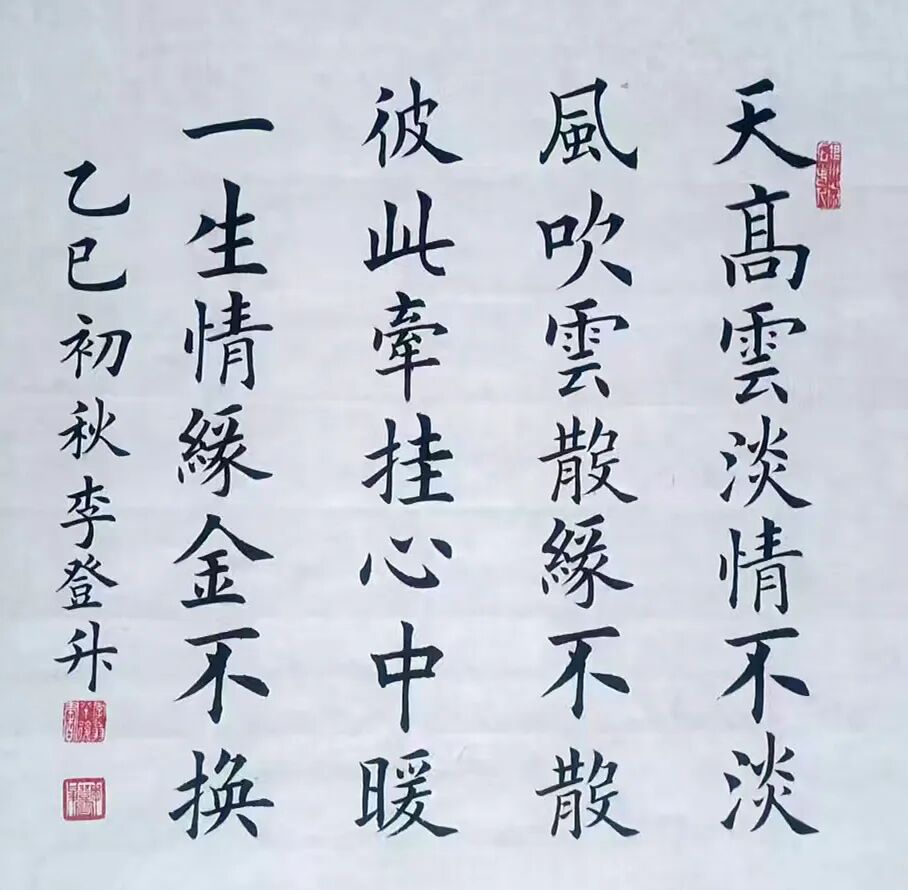 天髙雲淡情不淡
風吹雲散緣不散
彼此牽挂心中暖
一生情緣金不换
乙巳初秋李登升